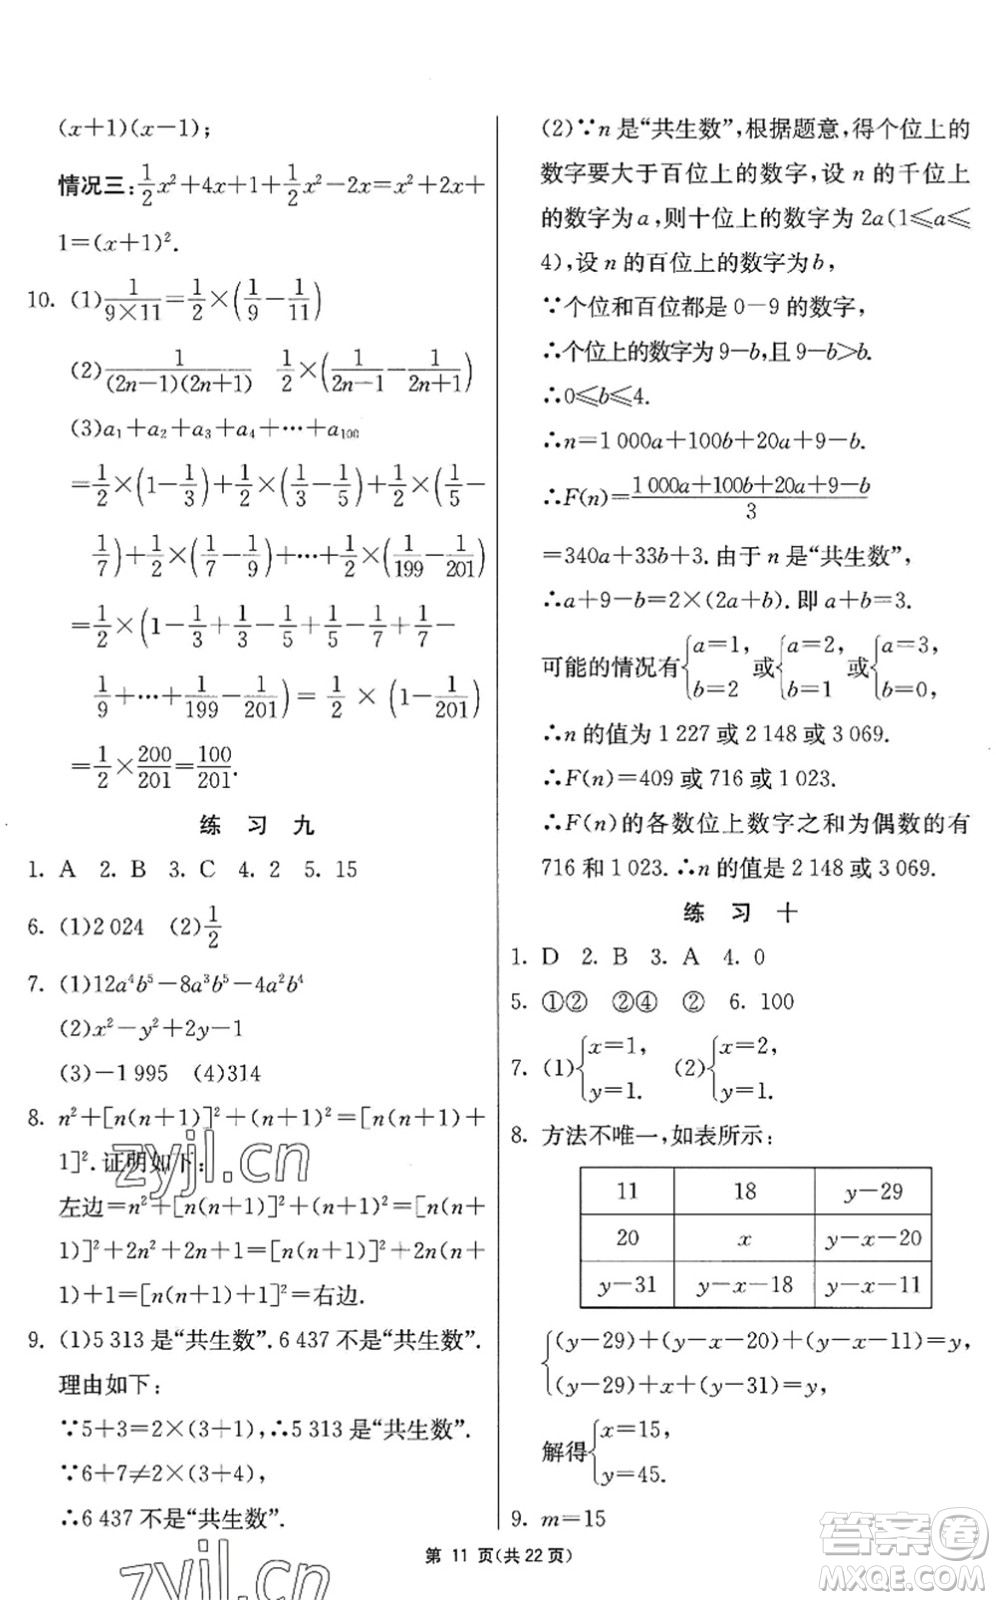 (x+1)(x−1);
情况三:1/2x²+4x+1+1/2x²−2x=x²+2x+
1=(x+1)².
10. (1)1/(9×11)=1/2×(1/9−1/11)
(2)1/((2n−1)(2n+1)) 1/2×(1/(2n−1)−1/(2n+1))
(3)a₁+a₂+a₃+a₄+⋯+a₁₀₀
=1/2×(1−1/3)+1/2×(1/3−1/5)+1/2×(1/5−
1/7)+1/2×(1/7−1/9)+⋯+1/2×(1/199−1/201)
=1/2×(1−1/3+1/3−1/5+1/5−1/7+1/7−
1/9+⋯+1/199−1/201)=1/2×(1−1/201)
=1/2×200/201=100/201.
练 习 九
1. A 2. B 3. C 4. 2 5. 15
6. (1)2 024 (2)1/2
7. (1)12a⁴b⁵−8a³b⁵−4a²b⁴
(2)x²−y²+2y−1
(3)−1 995 (4)314
8. n²+[n(n+1)]²+(n+1)²=[n(n+1)+
1]².证明如下:
左边=n²+[n(n+1)]²+(n+1)²=[n(n+
1)]²+2n²+2n+1=[n(n+1)]²+2n(n+
1)+1=[n(n+1)+1]²=右边.
9. (1)5 313 是“共生数”.6 437 不是“共生数”.
理由如下:
∵5+3=2×(3+1),∴5 313 是“共生数”.
∵6+7≠2×(3+4),
∴6 437 不是“共生数”.
(2)∵n 是“共生数”,根据题意,得个位上的
数字要大于百位上的数字,设 n 的千位上
的数字为 a,则十位上的数字为 2a(1⩽a⩽
4),设 n 的百位上的数字为 b,
∵个位和百位都是 0−9 的数字,
∴个位上的数字为 9−b,且 9−b>b.
∴0⩽b⩽4.
∴n=1 000a+100b+20a+9−b.
∴F(n)=(1 000a+100b+20a+9−b)/3
=340a+33b+3. 由于 n 是“共生数”,
∴a+9−b=2×(2a+b). 即 a+b=3.
可能的情况有{a=1, b=2 或{a=2, b=1 或{a=3, b=0,
∴n 的值为 1 227 或 2 148 或 3 069.
∴F(n)=409 或 716 或 1 023.
∴F(n)的各数位上数字之和为偶数的有
716 和 1 023.∴n 的值是 2 148 或 3 069.
练 习 十
1. D 2. B 3. A 4. 0
5. ①② ②④ ② 6. 100
7. (1){x=1, y=1. (2){x=2, y=1.
8. 方法不唯一,如表所示:
11 18 y−29
20 x y−x−20
y−31 y−x−18 y−x−11
{(y−29)+(y−x−20)+(y−x−11)=y,
(y−29)+x+(y−31)=y,
解得{x=15, y=45.
9. m=15
第 11 页(共 22 页)
zyjl.cn
zyjl.cn
答案圈
MXQE.COM